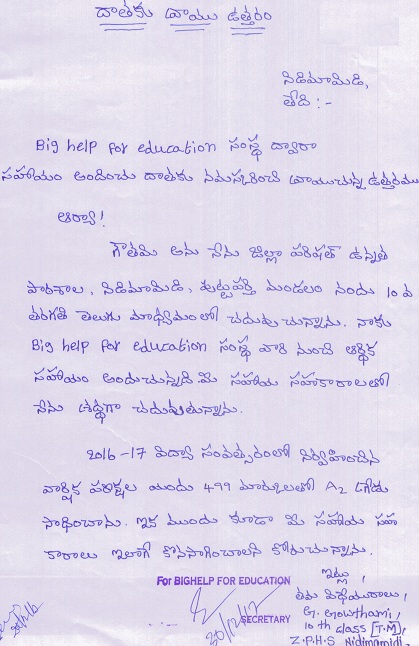 దాతకు వ్రాయు ఉత్తరం
నిడిమామిడి,
తేది :-
Big help for education సంస్థ ద్వారా
సహాయం అందించు దాతకు నమస్కరించి వ్రాయుచున్న ఉత్తరము
ఆర్యా!
గౌతమి అను నేను జిల్లా పరిషత్ ఉన్నత
పాఠశాల, నిడిమామిడి, పుట్టపర్తి మండలం నందు 10 వ
తరగతి తెలుగు మాధ్యమంలో చదువుచున్నాను. నాకు
Big help for education సంస్థ వారి నుంచి ఆర్థిక
సహాయం అందుచున్నది. మీ సహాయ సహకారాలతో
నేను శ్రద్ధగా చదువుతున్నాను.
2016-17 విద్యా సంవత్సరంలో నిర్వహించిన
వార్షిక పరీక్షల యందు 499 మార్కులతో A2 గ్రేడు
సాధించాను. ఇక ముందు కూడా మీ సహాయ సహ
కారాలు ఇలాగే కొనసాగించాలని కోరుచున్నాను.
ఇట్లు,
తమ విధేయురాలు,
G. Gowthami,
10th class [T.M],
Z.P.H.S Nidimamidi.
For BIGHELP FOR EDUCATION
SECRETARY
20/12/17